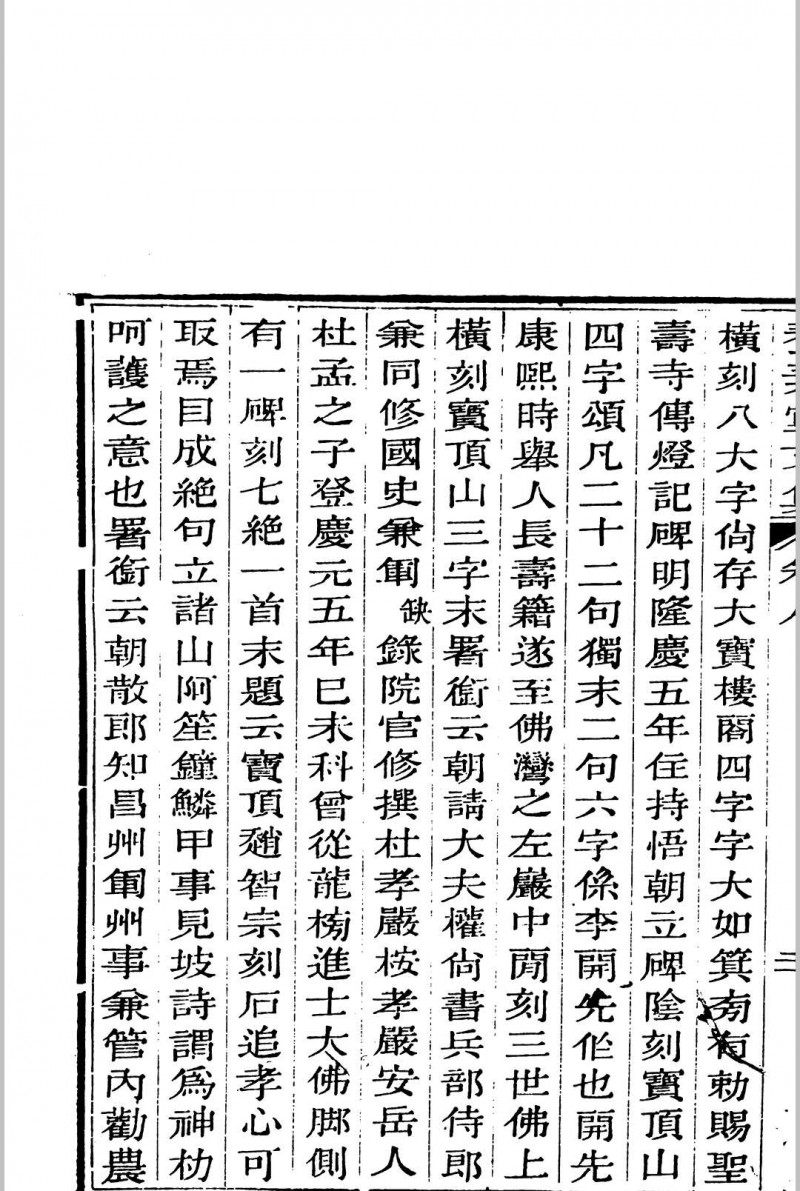 橫刻八大字尙存大寶樓閣四字字大如箕旁有勅賜聖
壽寺傳燈記碑明隆慶五年住持悟朝立碑陰刻寶頂山
四字頌凡二十二句獨末二句六字係李開先作也開先
康熙時舉人長壽籍遂至佛灣之左巖中閒刻三世佛上
橫刻寶頂山三字末署銜云朝請大夫權尙書兵部侍郎
兼同修國史兼軍缺錄院官修撰杜孝嚴桉孝嚴安岳人
杜孟之子登慶元五年巳未科曾從龍榜進士大佛脚側
有一碑刻七絶一首末題云寶頂趙智宗刻石追孝心可
取焉目成絶句立諸山阿笙鐘鱗甲事見坡詩謂爲神物
呵護之意也署銜云朝散郎知昌州軍州事兼管內勸農